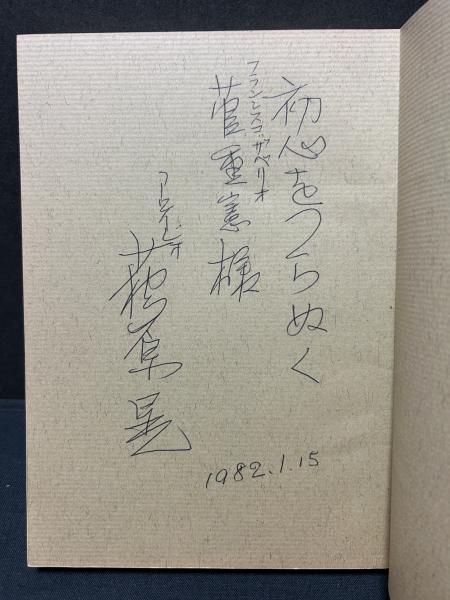 初心をつらぬく
フランシスコ・ザベリオ
菅重憲様
アロイジオ
萩原晃
1982.1.15